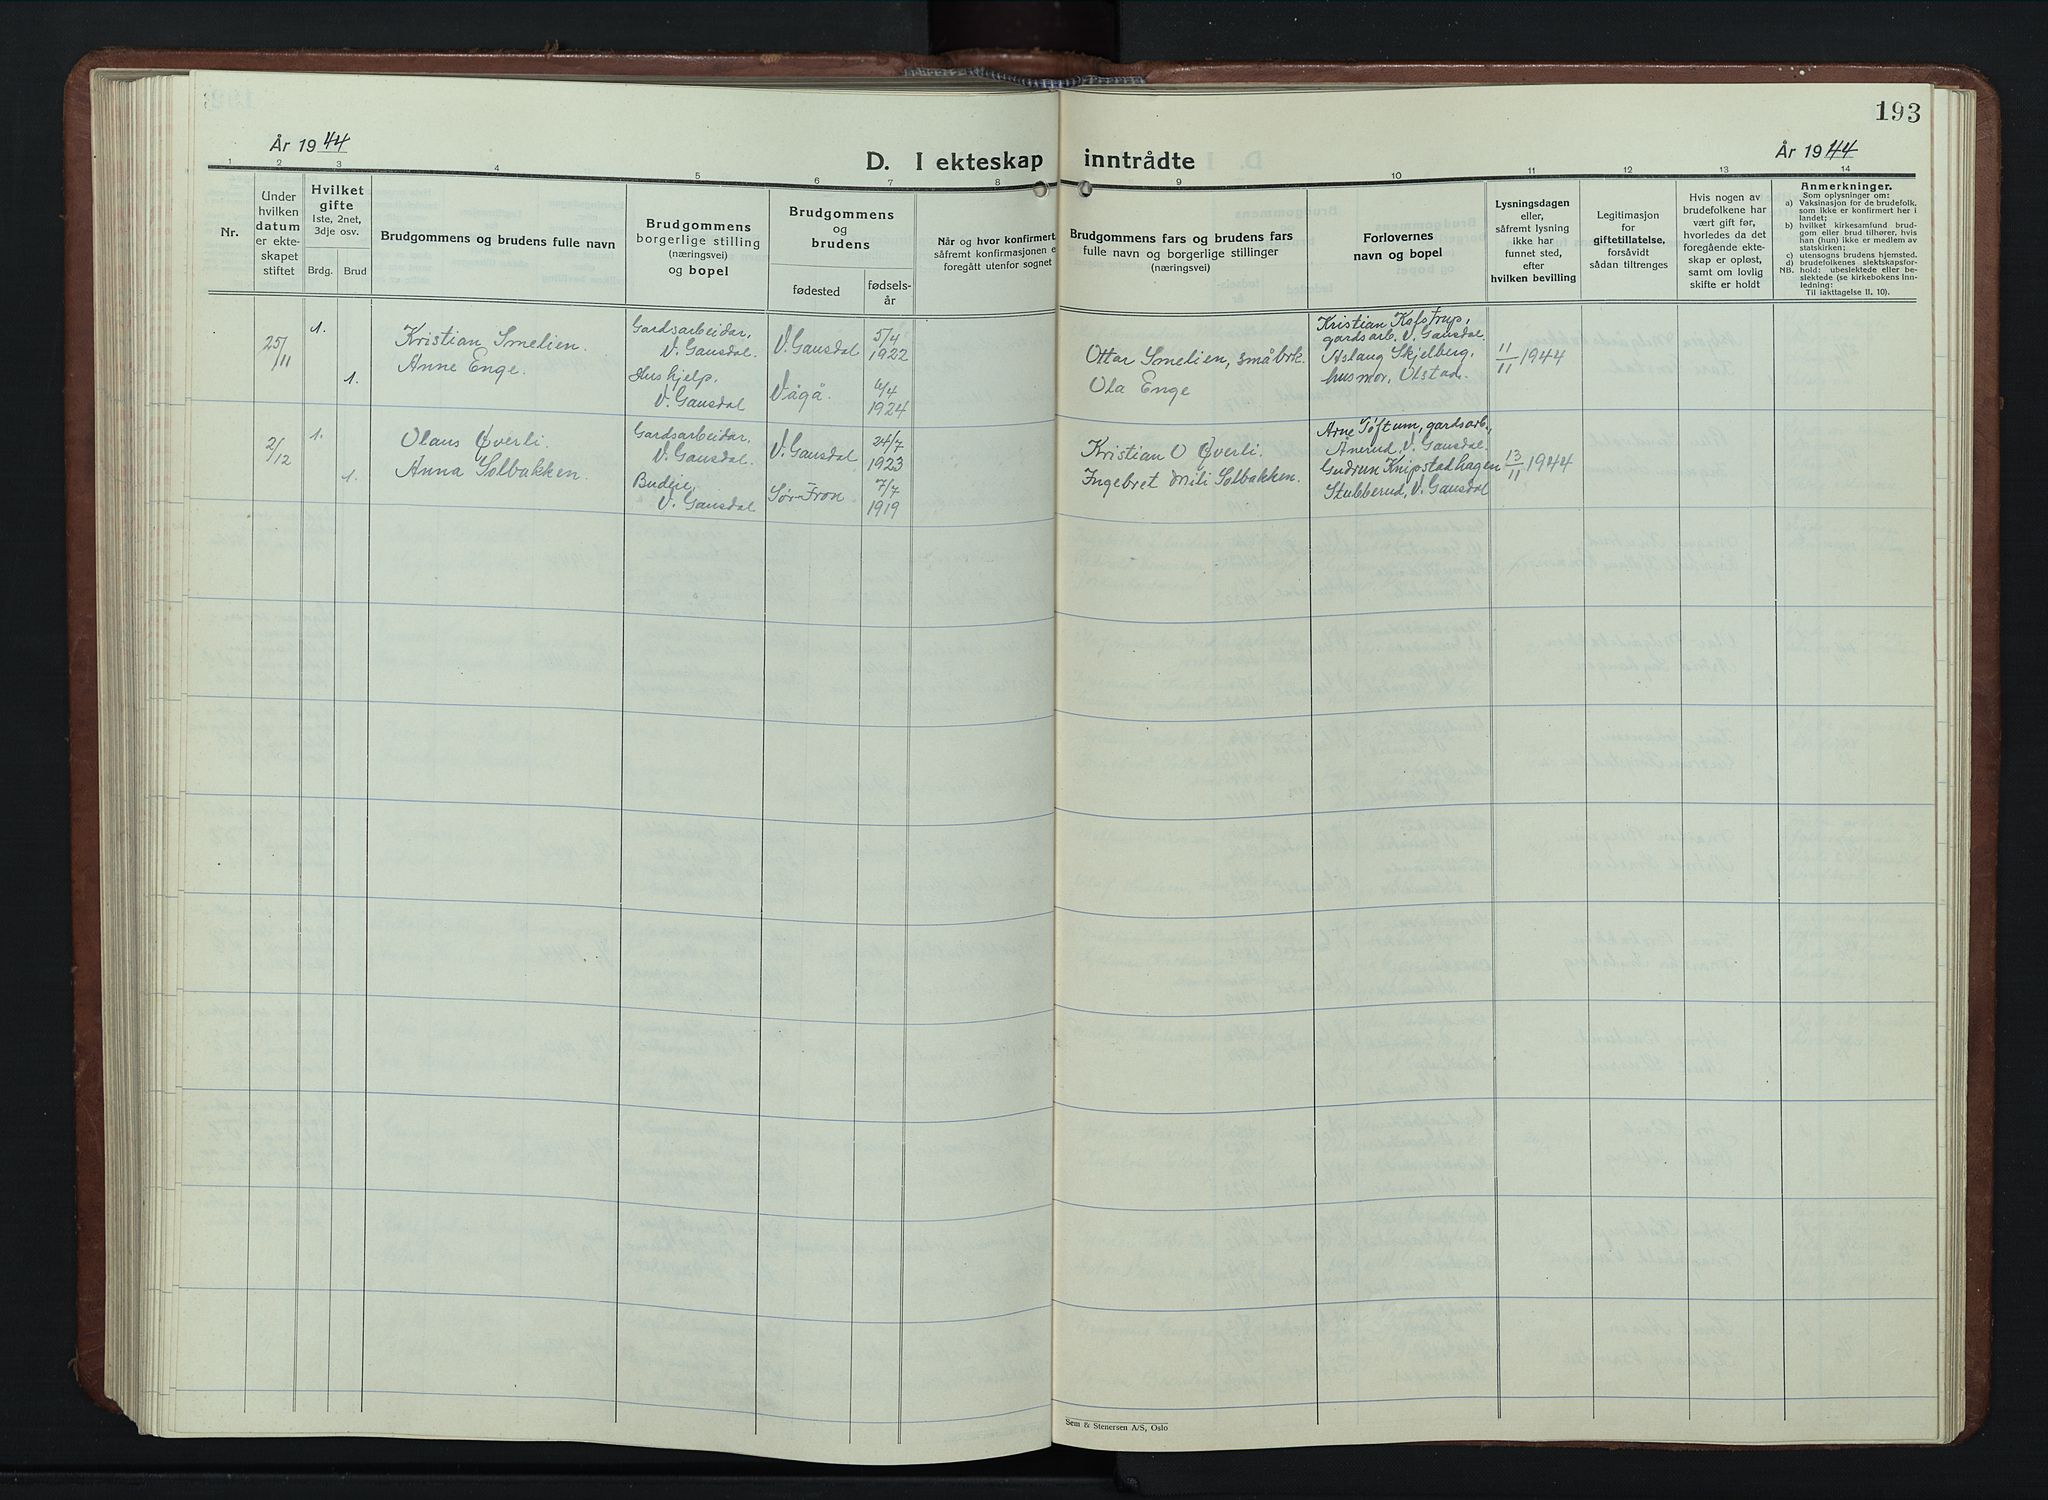 193
År 1944
D. I ekteskap inntrådte
År 1944
1 2 3 4 5 6 7 8 9 10 11 12 13 14
Nr.
Under
hvilken
datum
er ekte-
skapet
stiftet
Hvilket
gifte
1ste, 2net,
3dje osv.
Brdg. Brud
Brudgommens og brudens fulle navn
Brudgommens
borgerlige stilling
(næringsvei)
og bopel
Brudgommens
og
brudens
fødested
fødsels-
år
Når og hvor konfirmert,
såfremt konfirmasjonen e
foregått utenfor sognet
Brudgommens fars og brudens fars
fulle navn og borgerlige stillinger
(næringsvei)
Forlovernes
navn og bopel
Lysningsdagen
eller,
såfremt lysning
ikke har
funnet sted,
efter
hvilken bevilling
Legitimasjon
for
giftetillatelse,
forsåvidt
sådan tiltrenges
Hvis nogen av
brudefolkene har
vært gift før,
hvorledes da det
foregående ekte-
skap er opløst,
samt om lovlig
skifte er holdt
Anmerkninger.
Som oplysninger om:
a) Vaksinasjon for de brudefolk,
som ikke er konfirmert her i
landet;
b) hvilket kirkesamfund brud-
gom eller brud tilhører, hvis
han (hun) ikke er medlem av
statskirken;
c) utensogns brudens hjemsted.
d) brudefolkenes slektskapsfor-
hold: ubeslektede eller be-
NB. slektede (se kirkebokens inn-
ledning:
Til iakttagelse II, 10).
25/11
1.
Kristian Smelien.
Gardsarbeidar,
V. Gausdal.
V. Gausdal
5/4
1922
Ottar Smelien, småbrk.
Kristian Kalstrup,
gardsarb. V. Gausdal.
11/11 1944
1.
Anne Enge.
Hushjelp,
V. Gausdal
Vågå.
6/4
1924
Ola Enge
Aslaug Skjelberg,
husmor, Olstad.
2/12
1.
Olaus Øverli.
Gardsarbeidar,
V. Gausdal.
V. Gausdal
24/7
1923
Kristian O Øverli.
Arne Tøftum, gardsarb.,
Ånerud, V. Gausdal.
13/11 1944
1.
Anna Solbakken.
Budeie,
V. Gausdal
Sør-Fron
7/7
1919
Ingebret Mili Solbakken.
Gudrun Knipstadhagen
Stubberud, V. Gausdal
Sem & Stenersen A/S, Oslo